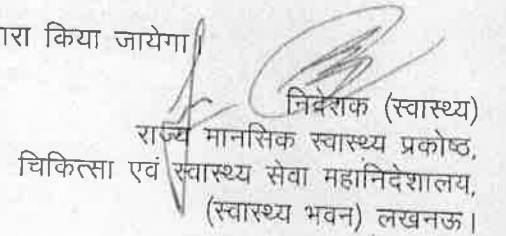 ारा किया जायेगा।
निदेशक (स्वास्थ्य)
राज्य मानसिक स्वास्थ्य प्रकोष्ठ,
चिकित्सा एवं स्वास्थ्य सेवा महानिदेशालय,
(स्वास्थ्य भवन) लखनऊ।